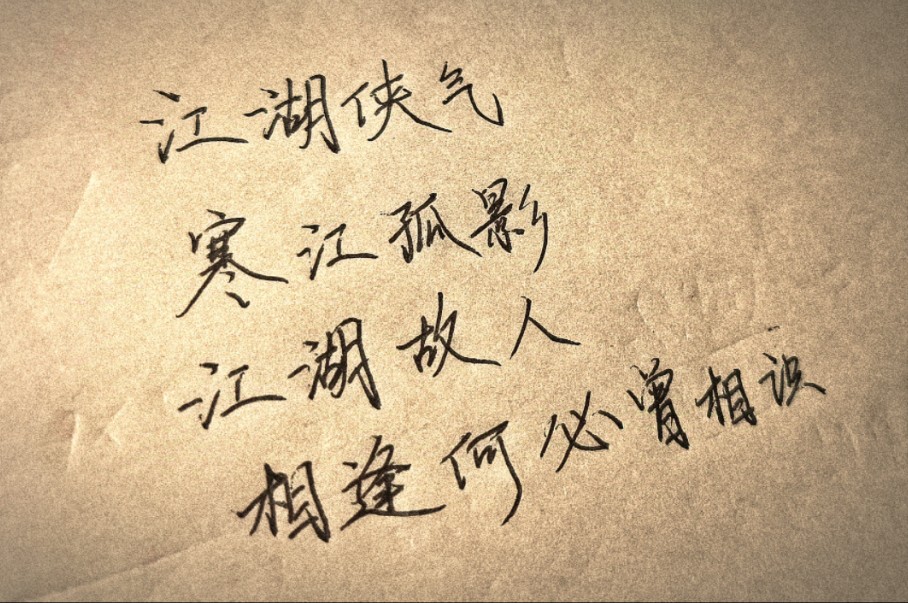 江湖侠气
寒江孤影
江湖故人
相逢何必曾相识